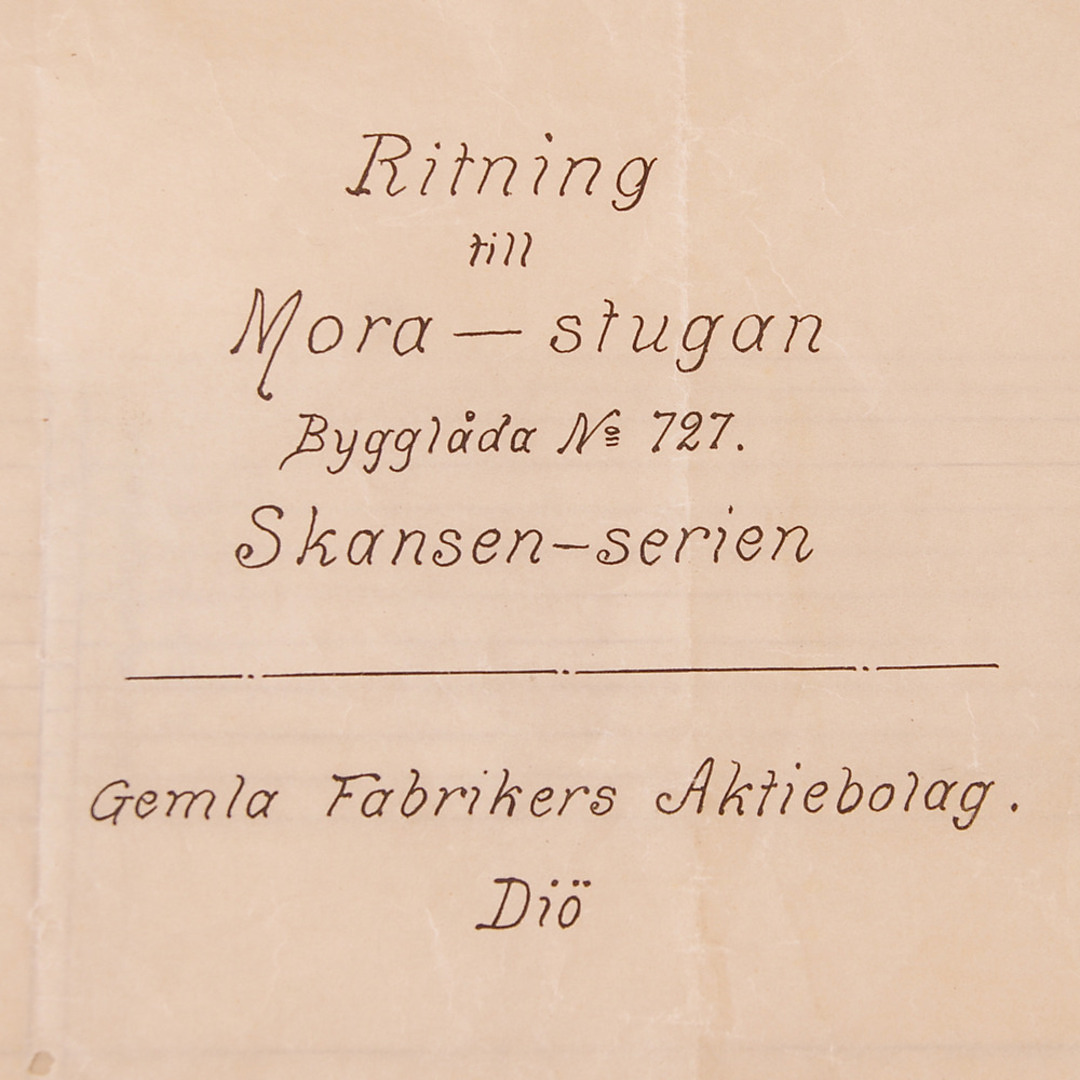 Ritning
till
Mora — stugan
Bygglåda № 727.
Skansen-serien
Gemla Fabrikers Aktiebolag.
Diö